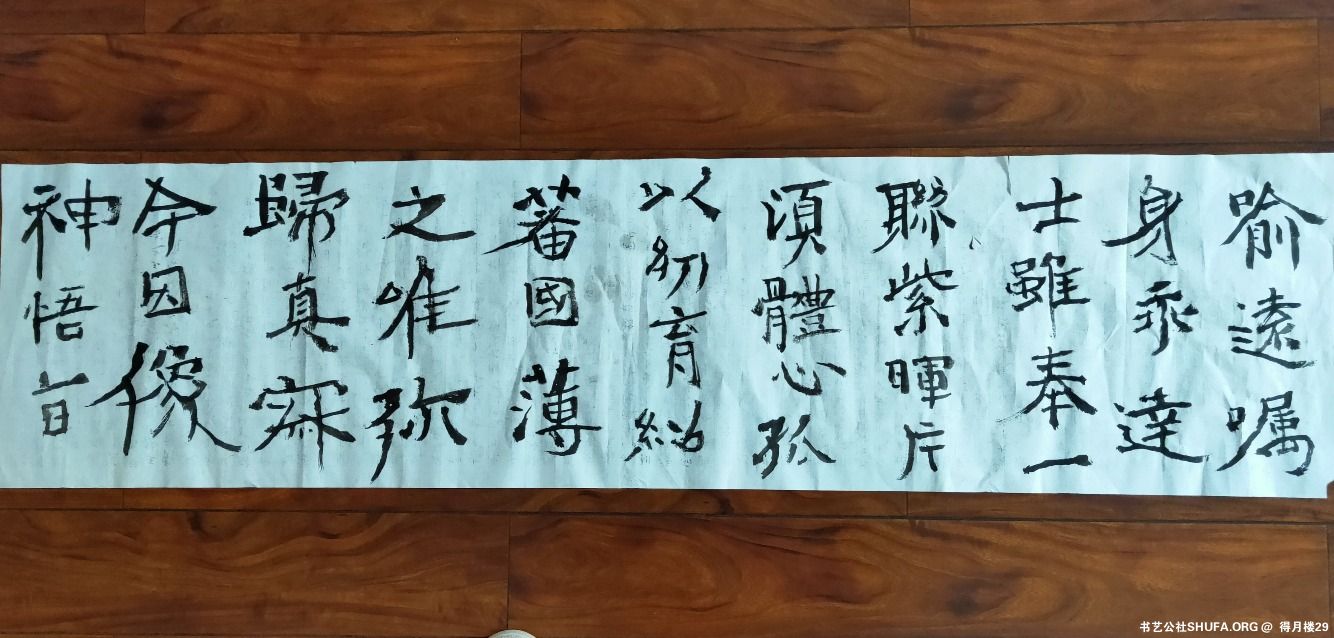 喻遠嘱
身乖達
士雖奉一
聯紫暉片
須體心孤
以幼育紹
蕃國薄
之唯弥
歸真寐
今因像
神悟言
书艺公社SHUFA.ORG @ 得月楼29